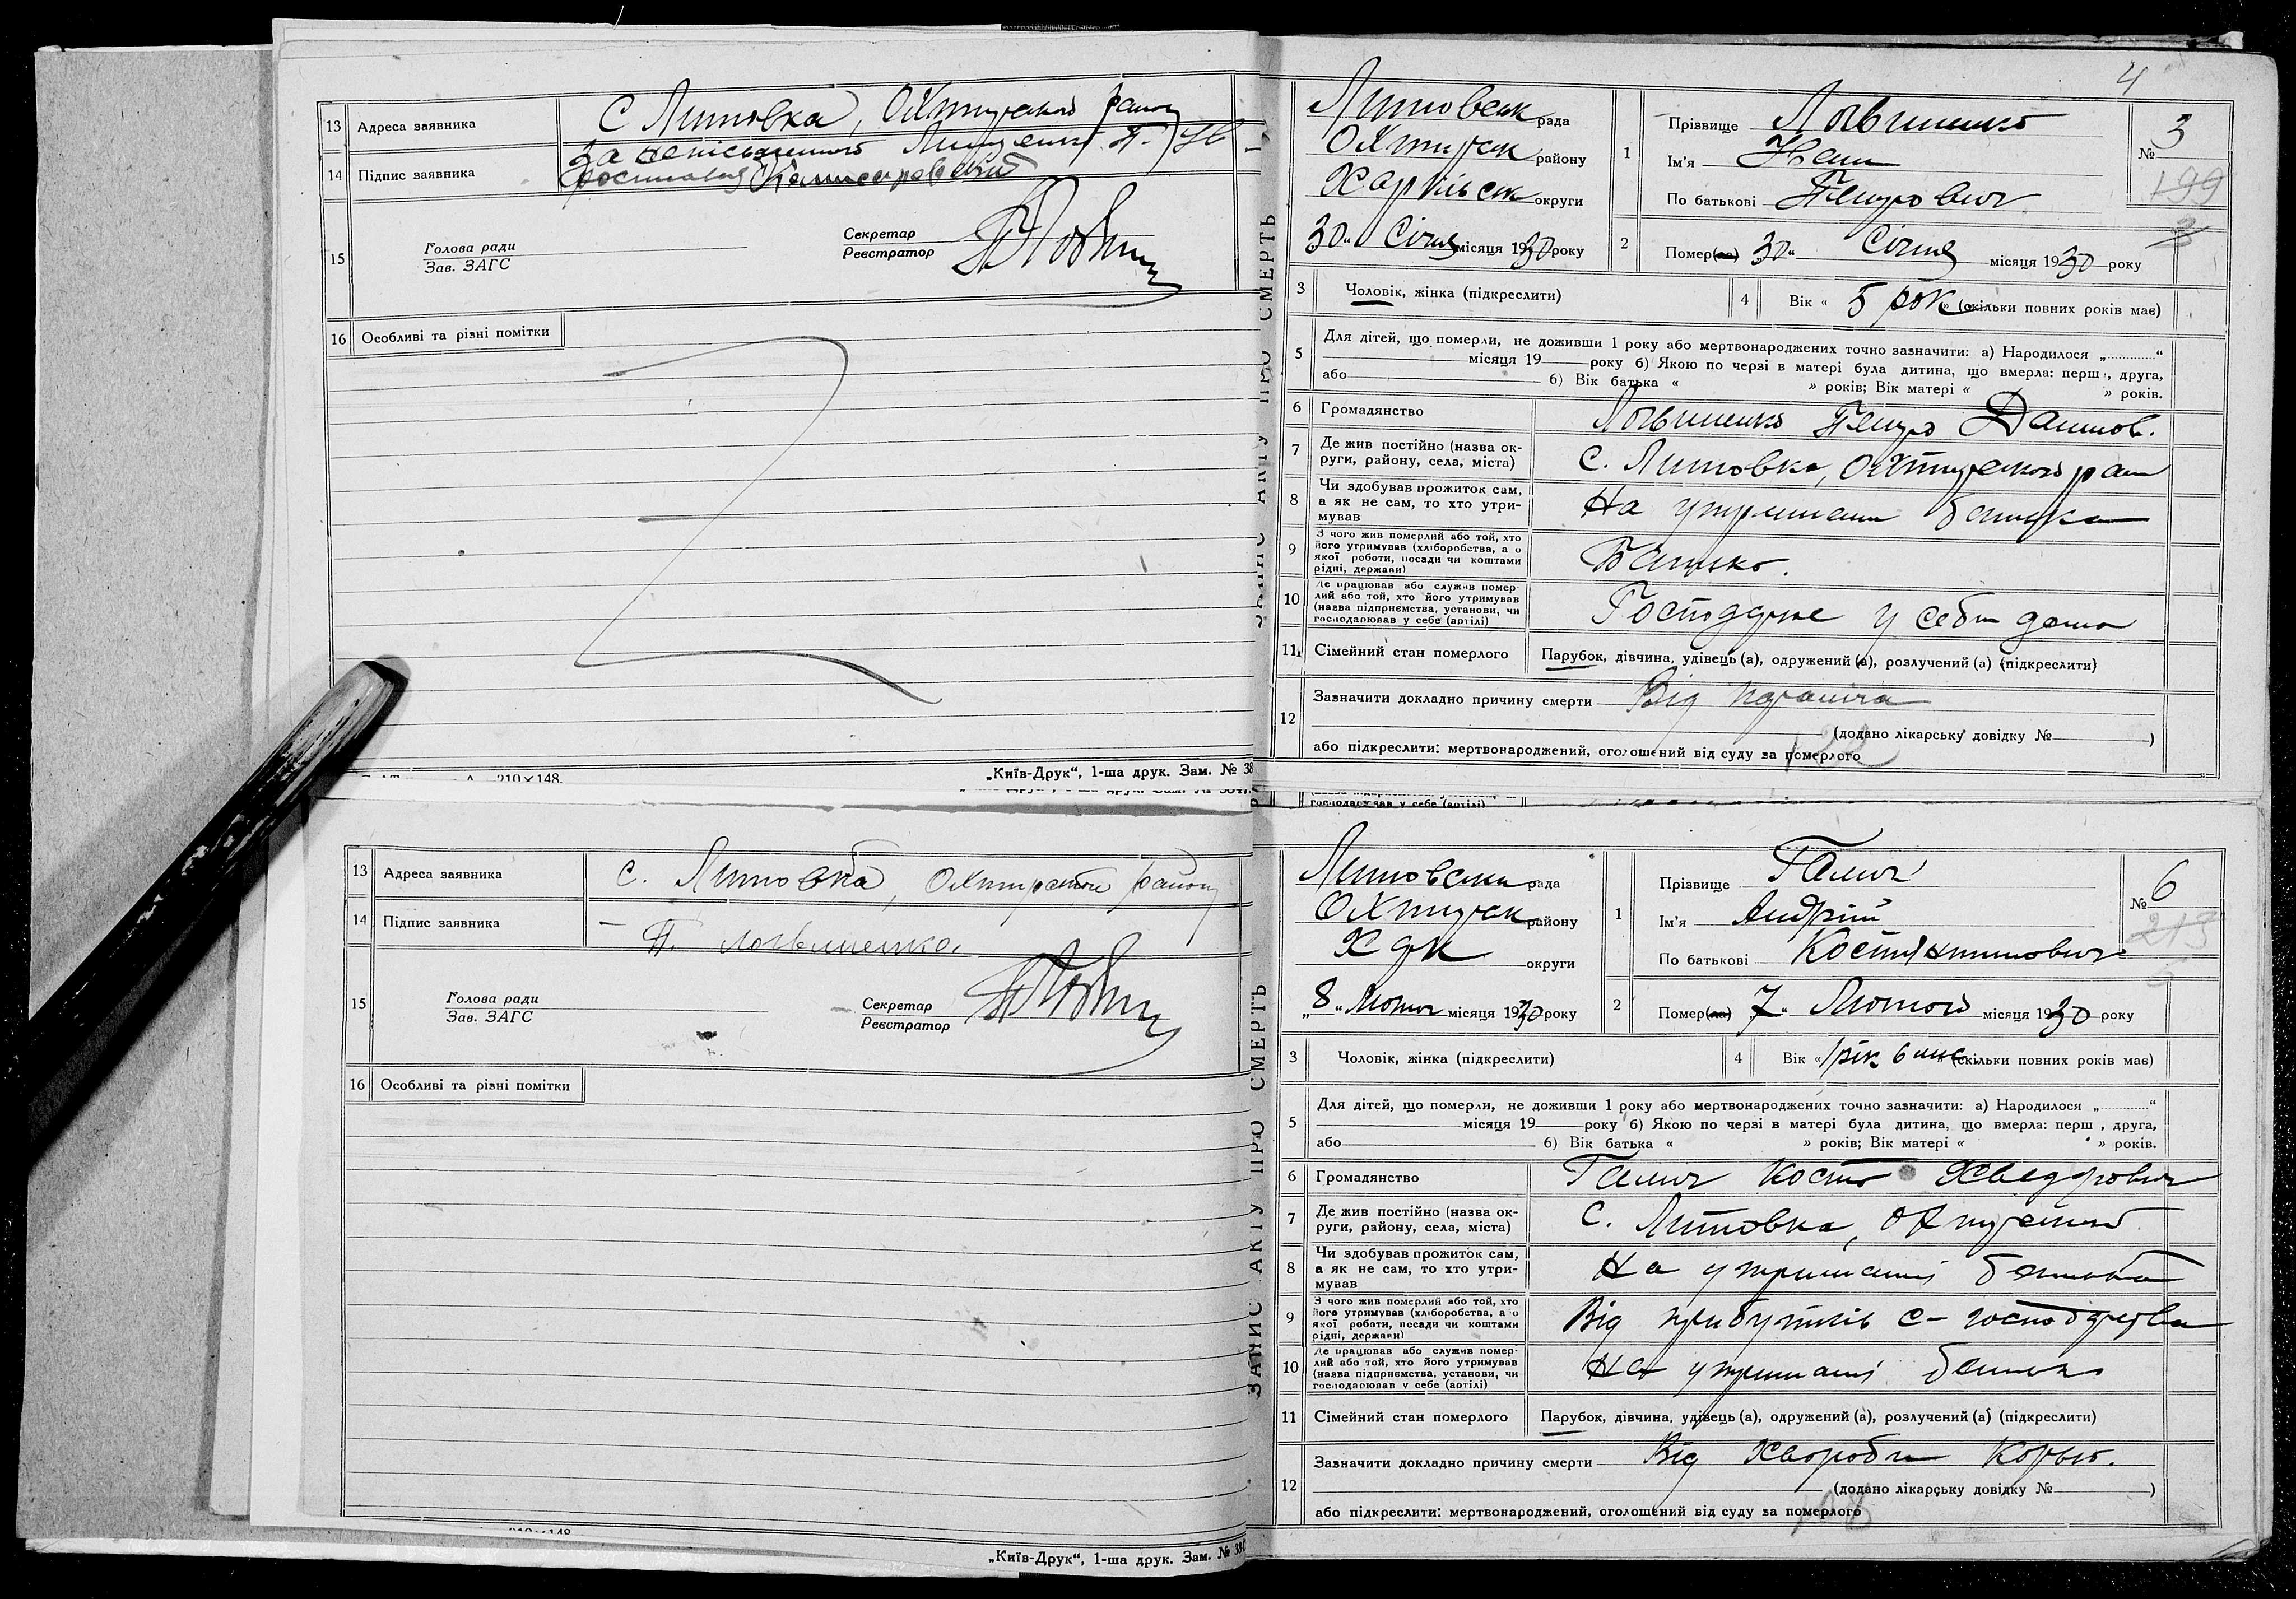 13 Адреса заявника С Литовка, Охтирського району
14 Підпис заявника За неписьменного
15 Голова ради
Зав. ЗАГС
Секретар
Реєстратор
16 Особливі та різні помітки
210×148.
„Київ-Друк“, 1-ша друк. Зам. № 38
4
Литовськ рада
Охтирськ району
Харківськ округи
30 „ Січня місяця 1930 року
1 Прізвище Логвиненко
Ім'я
По батькові Петрович
№ 3
199
3
2 Помер(ла) 30 „ Січня місяця 1930 року
3 Чоловік, жінка (підкреслити)
4 Вік « 5 рок » (скільки повних років має)
5 Для дітей, що померли, не доживши 1 року або мертвонароджених точно зазначити: а) Народилося „ “
місяця 19 року б) Якою по черзі в матері була дитина, що вмерла: перш , друга,
або б) Вік батька « » років; Вік матері « » років.
6 Громадянство Логвиненко Петро
7 Де жив постійно (назва округи, району, села, міста) С. Литовка, Охтирського рай
8 Чи здобував прожиток сам, а як не сам, то хто утримував На утриман батька
9 З чого жив померлий або той, хто його утримував (хліборобства, а о якої роботи, посади чи коштами рідні, держави) Батько.
10 Де працював або служив померлий або той, хто його утримував (назва підприємства, установи, чи господарював у себе (артілі) у себе дома
11 Сімейний стан померлого Парубок, дівчина, удівець (а), одружений (а), розлучений (а) (підкреслити)
12 Зазначити докладно причину смерти Від
(додано лікарську довідку № )
або підкреслити: мертвонароджений, оголошений від суду за померлого
ЗАПИС АКТУ ПРО СМЕРТЬ
13 Адреса заявника с. Литовка, Охтирського району
14 Підпис заявника П. Логвиненко.
15 Голова ради
Зав. ЗАГС
Секретар
Реєстратор
16 Особливі та різні помітки
„Київ-Друк“, 1-ша друк. Зам. №
Литовськ рада
Охтирськ району
округи
„8 „ місяця 1930 року
1 Прізвище Галич
Ім'я Андрій
По батькові Костянтинович
№ 6
2 Помер(ла) 7 „ Лютого місяця 1930 року
3 Чоловік, жінка (підкреслити)
4 Вік « 1 рік 6 міс » (скільки повних років має)
5 Для дітей, що померли, не доживши 1 року або мертвонароджених точно зазначити: а) Народилося „ “
місяця 19 року б) Якою по черзі в матері була дитина, що вмерла: перш , друга,
або б) Вік батька « » років; Вік матері « » років.
6 Громадянство Галич Хведорович
7 Де жив постійно (назва округи, району, села, міста) С. Литовка, Охтирського
8 Чи здобував прожиток сам, а як не сам, то хто утримував На утриманні батька
9 З чого жив померлий або той, хто його утримував (хліборобства, а о якої роботи, посади чи коштами рідні, держави) Від прибутків с-господарства
10 Де працював або служив померлий або той, хто його утримував (назва підприємства, установи, чи господарював у себе (артілі) На утриманні батька
11 Сімейний стан померлого Парубок, дівчина, удівець (а), одружений (а), розлучений (а) (підкреслити)
12 Зазначити докладно причину смерти Від Хвороби
(додано лікарську довідку № )
або підкреслити: мертвонароджений, оголошений від суду за померлого
ЗАПИС АКТУ ПРО СМЕРТЬ